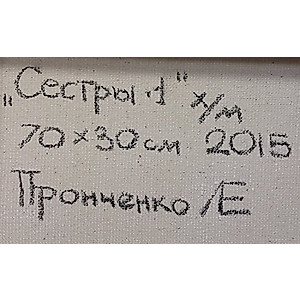 „Сестры·1" х/м
70×30см 2015
Пронченко /Е